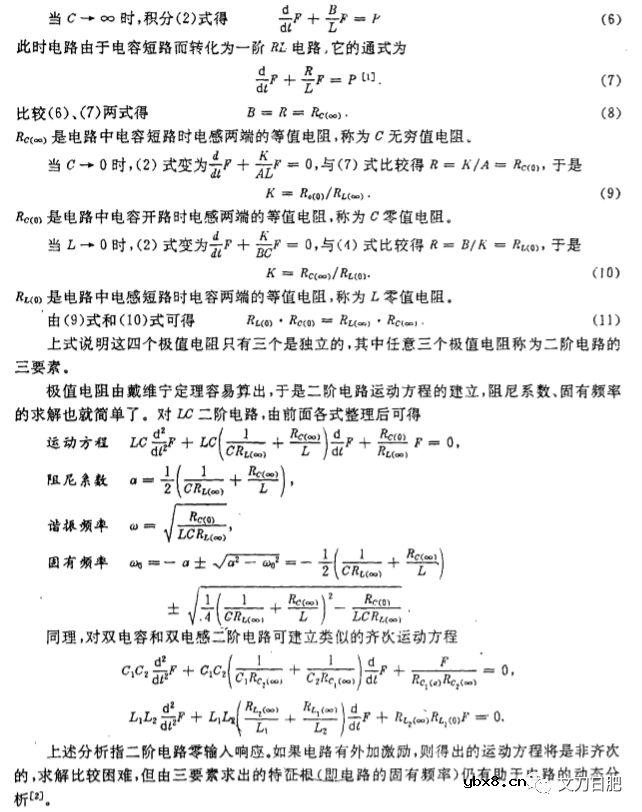 当 C → ∞ 时,积分(2)式得 d/dt F + B/L F = P (6)
此时电路由于电容短路而转化为一阶 RL 电路,它的通式为
d/dt F + R/L F = P [1]. (7)
比较(6)、(7)两式得 B = R = R_C(∞). (8)
R_C(∞) 是电路中电容短路时电感两端的等值电阻,称为 C 无穷值电阻。
当 C → 0 时,(2) 式变为 d/dt F + K/AL F = 0,与(7) 式比较得 R = K/A = R_C(0), 于是
K = R_c(0)/R_L(∞). (9)
R_C(0) 是电路中电容开路时电感两端的等值电阻,称为 C 零值电阻。
当 L → 0 时,(2) 式变为 d/dt F + K/BC F = 0,与(4) 式比较得 R = B/K = R_L(0), 于是
K = R_C(∞)/R_L(0). (10)
R_L(0) 是电路中电感短路时电容两端的等值电阻,称为 L 零值电阻。
由(9)式和(10)式可得 R_L(0) · R_C(0) = R_L(∞) · R_C(∞). (11)
上式说明这四个极值电阻只有三个是独立的,其中任意三个极值电阻称为二阶电路的
三要素。
极值电阻由戴维宁定理容易算出,于是二阶电路运动方程的建立,阻尼系数、固有频率
的求解也就简单了。对 LC 二阶电路,由前面各式整理后可得
运动方程 LC d²/dt² F + LC(1/CR_L(∞) + R_C(∞)/L) d/dt F + R_C(0)/R_L(∞) F = 0,
阻尼系数 α = 1/2 (1/CR_L(∞) + R_C(∞)/L),
谐振频率 ω = √(R_C(0)/LCR_L(∞)),
固有频率 ω₀ = − α ± √(α² − ω₀²) = − 1/2 (1/CR_L(∞) + R_C(∞)/L)
± √(1/4 (1/CR_L(∞) + R_C(∞)/L)² − R_C(0)/LCR_L(∞)).
同理,对双电容和双电感二阶电路可建立类似的齐次运动方程
C₁C₂ d²/dt² F + C₁C₂(1/C₁R_C₂(∞) + 1/C₂R_C₁(∞)) d/dt F + F/R_C₁(0)R_C₂(∞) = 0,
L₁L₂ d²/dt² F + L₁L₂(R_L₂(∞)/L₁ + R_L₁(∞)/L₂) d/dt F + R_L₂(∞)R_L₁(0)F = 0.
上述分析指二阶电路零输入响应。如果电路有外加激励,则得出的运动方程将是非齐次
的,求解比较困难,但由三要素求出的特征根(即电路的固有频率)仍有助于电路的动态分
析[2]。
ybx8.cn
文刀日肥